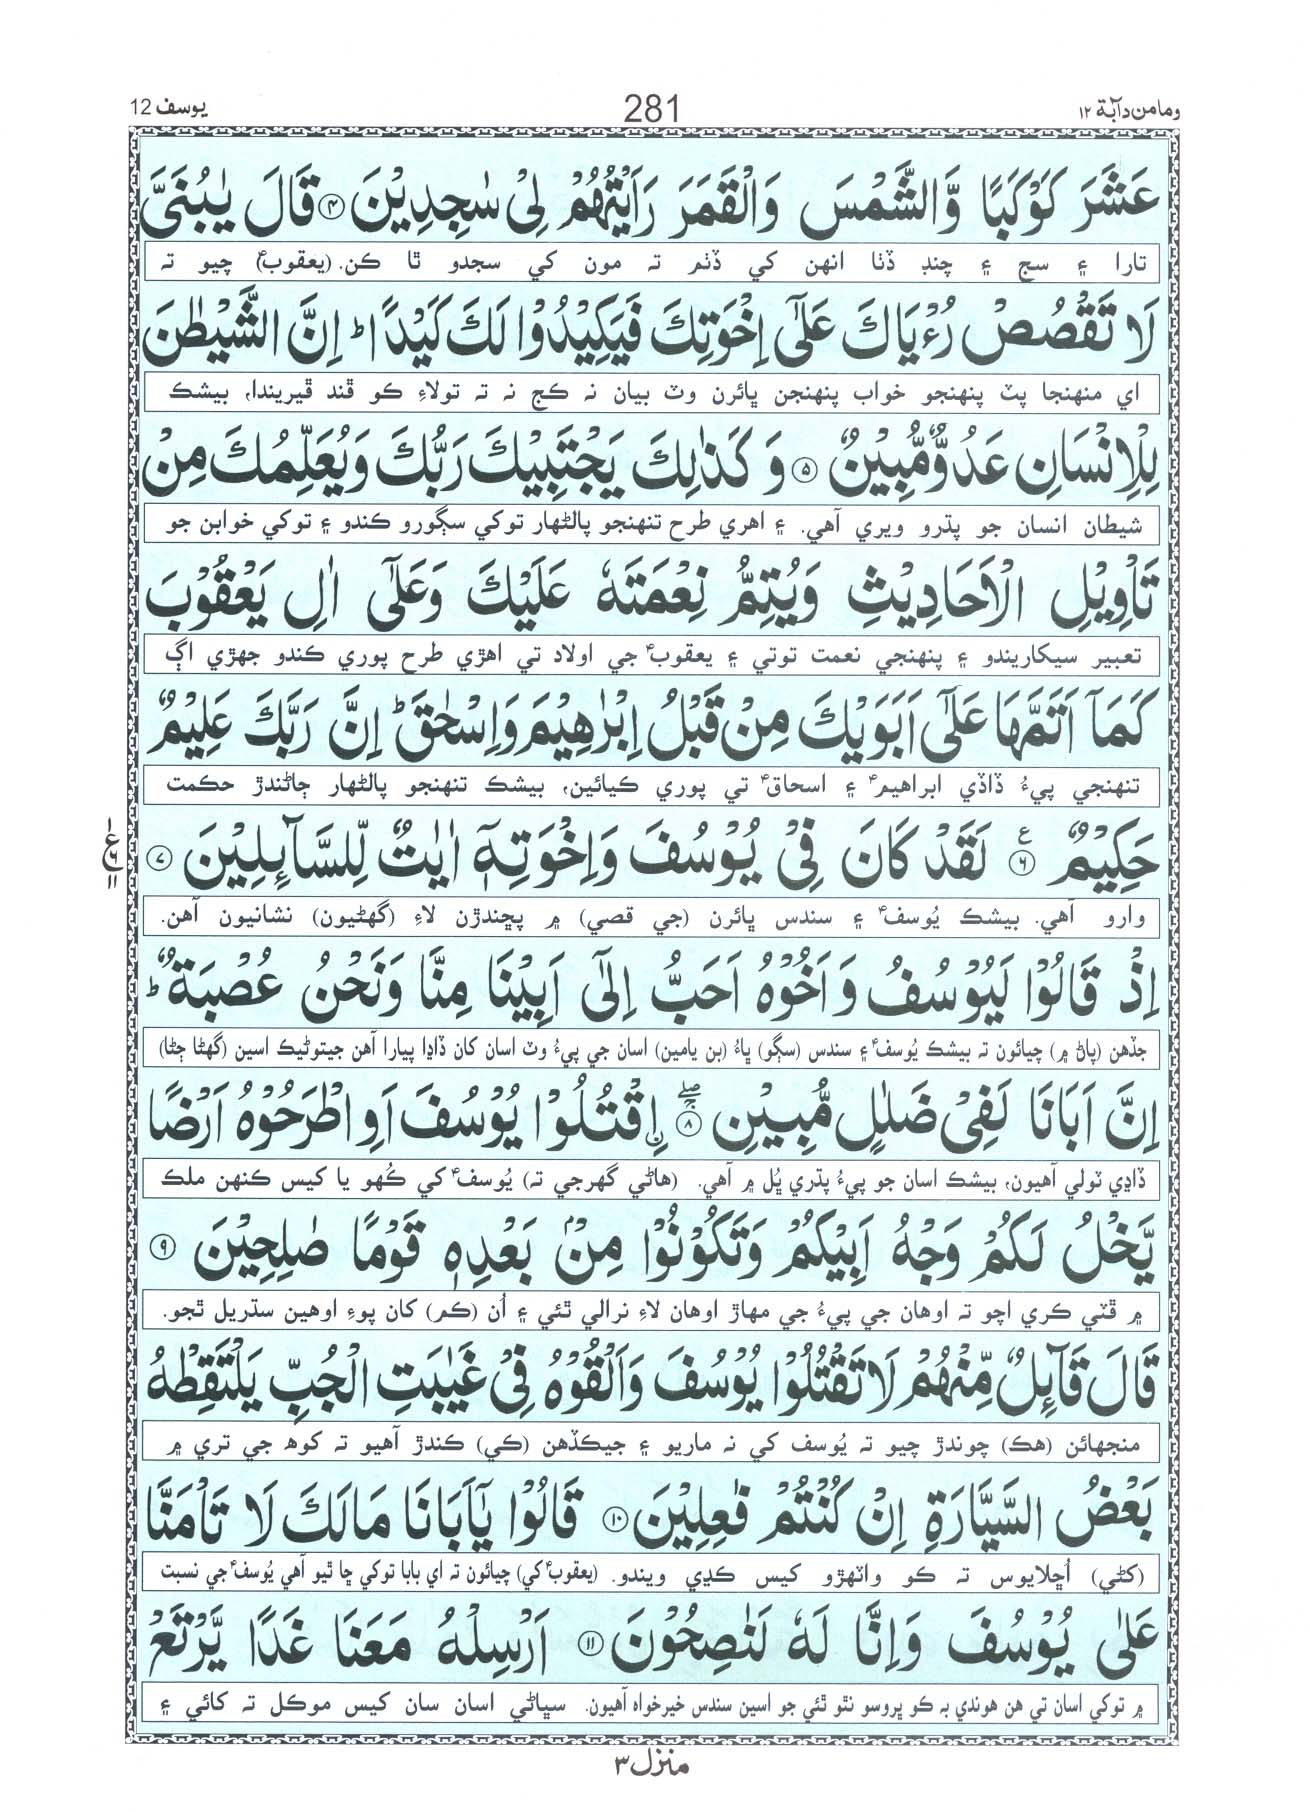 يوسف 12
281
ومامن دآبة ١٢
عَشَرَ كَوْكَبًا وَّالشَّمْسَ وَالْقَمَرَ رَاَيْتُهُمْ لِيْ سٰجِدِيْنَ ۴ قَالَ يٰبُنَيَّ
تارا ۽ سج ۽ چنڊ ڏٺا انهن کي ڏٺم ته مون کي سجدو ٿا ڪن. (يعقوبؑ) چيو ته
لَا تَقْصُصْ رُءْيَاكَ عَلٰٓى اِخْوَتِكَ فَيَكِيْدُوْا لَكَ كَيْدًا ؕ اِنَّ الشَّيْطٰنَ
اي منهنجا پٽ پنهنجو خواب پنهنجن ڀائرن وٽ بيان نه ڪج نه ته تولاءِ ڪو ڦند ڦيريندا، بيشڪ
لِلْاِنْسَانِ عَدُوٌّ مُّبِيْنٌ ۵ وَكَذٰلِكَ يَجْتَبِيْكَ رَبُّكَ وَيُعَلِّمُكَ مِنْ
شيطان انسان جو پڌرو ويري آهي. ۽ اهڙي طرح تنهنجو پالڻهار توکي سڳورو ڪندو ۽ توکي خوابن جو
تَاْوِيْلِ الْاَحَادِيْثِ وَيُتِمُّ نِعْمَتَهٗ عَلَيْكَ وَعَلٰٓى اٰلِ يَعْقُوْبَ
تعبير سيکاريندو ۽ پنهنجي نعمت توتي ۽ يعقوبؑ جي اولاد تي اهڙي طرح پوري ڪندو جهڙي اڳ
كَمَآ اَتَمَّهَا عَلٰٓى اَبَوَيْكَ مِنْ قَبْلُ اِبْرٰهِيْمَ وَاِسْحٰقَ ؕ اِنَّ رَبَّكَ عَلِيْمٌ
تنهنجي پيءُ ڏاڏي ابراهيمؑ ۽ اسحاقؑ تي پوري ڪيائين، بيشڪ تنهنجو پالڻهار ڄاڻندڙ حڪمت
حَكِيْمٌ ۶ ع لَقَدْ كَانَ فِيْ يُوْسُفَ وَاِخْوَتِهٖٓ اٰيٰتٌ لِّلسَّآئِلِيْنَ ۷
وارو آهي. بيشڪ يُوسفؑ ۽ سندس ڀائرن (جي قصي) ۾ پڇندڙن لاءِ (گهڻيون) نشانيون آهن.
اِذْ قَالُوْا لَيُوْسُفُ وَاَخُوْهُ اَحَبُّ اِلٰٓى اَبِيْنَا مِنَّا وَنَحْنُ عُصْبَةٌ ؕ
جڏهن (پاڻ ۾) چيائون ته بيشڪ يُوسفؑ ۽ سندس (سڳو) ڀاءُ (بن يامين) اسان جي پيءُ وٽ اسان کان ڏاڍا پيارا آهن جيتوڻيڪ اسين (گهڻا ڄڻا)
اِنَّ اَبَانَا لَفِيْ ضَلٰلٍ مُّبِيْنِ ۸ اِۨقْتُلُوْا يُوْسُفَ اَوِ اطْرَحُوْهُ اَرْضًا
ڏاڍي ٽولي آهيون، بيشڪ اسان جو پيءُ پڌري ڀُل ۾ آهي. (هاڻي گهرجي ته) يُوسفؑ کي ڪُهو يا کيس ڪنهن ملڪ
يَّخْلُ لَكُمْ وَجْهُ اَبِيْكُمْ وَتَكُوْنُوْا مِنْۢ بَعْدِهٖ قَوْمًا صٰلِحِيْنَ ۹
۾ ڦٽي ڪري اچو ته اوهان جي پيءُ جي مهاڙ اوهان لاءِ نرالي ٿئي ۽ اُن (ڪم) کان پوءِ اوهين سڌريل ٿجو.
قَالَ قَآئِلٌ مِّنْهُمْ لَا تَقْتُلُوْا يُوْسُفَ وَاَلْقُوْهُ فِيْ غَيٰبَتِ الْجُبِّ يَلْتَقِطْهُ
منجهائن (هڪ) چوندڙ چيو ته يُوسف کي نه ماريو ۽ جيڪڏهن (ڪي) ڪندڙ آهيو ته کوهه جي تري ۾
بَعْضُ السَّيَّارَةِ اِنْ كُنْتُمْ فٰعِلِيْنَ ۱۰ قَالُوْا يٰٓاَبَانَا مَالَكَ لَا تَاْمَنَّا
(کڻي) اُڇلايوس ته ڪو واٽهڙو کيس کڍي ويندو. (يعقوبؑ کي) چيائون ته اي بابا توکي ڇا ٿيو آهي يُوسفؑ جي نسبت
عَلٰى يُوْسُفَ وَاِنَّا لَهٗ لَنٰصِحُوْنَ ۱۱ اَرْسِلْهُ مَعَنَا غَدًا يَّرْتَعْ
۾ توکي اسان تي هن هوندي به ڪو ڀروسو نٿو ٿئي جو اسين سندس خيرخواه آهيون. سڀاڻي اسان سان کيس موڪل ته کائي ۽
منزل ٣